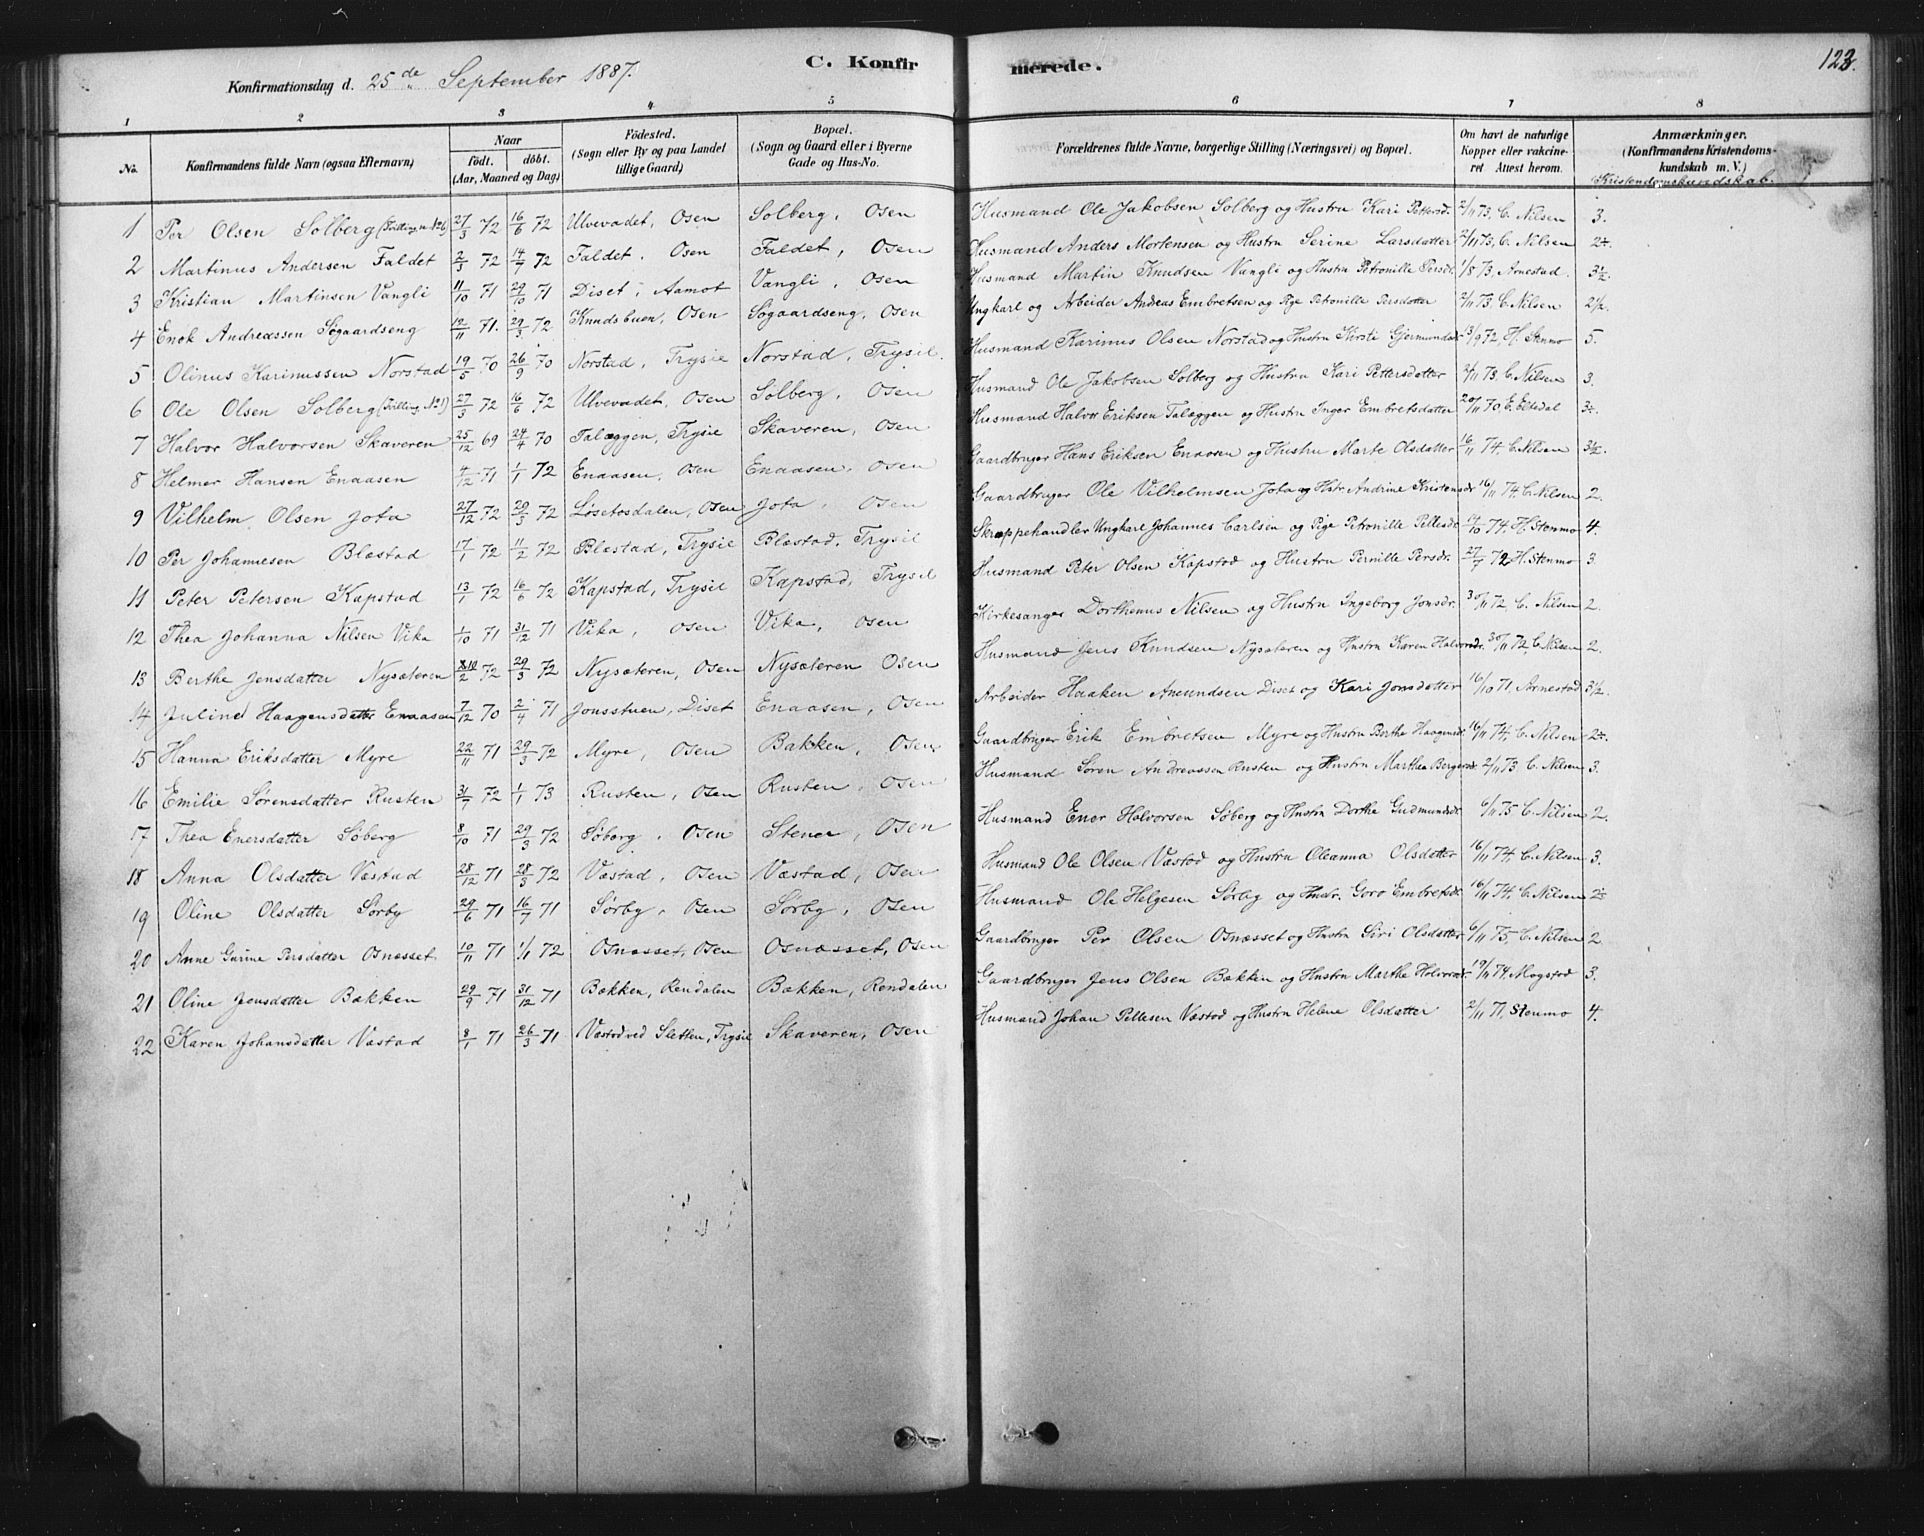 C. Konfirmerede. 123.
Konfirmationsdag d. 25de September 1887.
1 2 3 4 5 6 7 8
No. Konfirmandens fulde Navn (ogsaa Efternavn) Naar födt. döbt. (Aar, Maaned og Dag) Födested. (Sogn eller By og paa Landet tillige Gaard) Bopæl. (Sogn og Gaard eller i Byerne Gade og Hus-No. Forældrenes fulde Navne, borgerlige Stilling (Næringsvei) og Bopæl. Om havt de naturlige Kopper eller vakcineret Attest herom. Anmærkninger. (Konfirmandens Kristendomskundskab m. V.)
Kristendomskundskab.
1 Per Olsen Solberg (Tvilling m. No 6) 27/3 72 16/6 72 Ulvevadet, Osen Solberg, Osen Husmand Ole Jakobsen Solberg og Hustru Kari Pettersd. 2/11 73, C. Nilsen 3.
2 Martinus Andersen Faldet 2/3 72 14/7 72 Faldet. Osen Faldet, Osen Husmand Anders Mortensen og Hustru Serine Larsdatter 2/11 73, C. Nilsen 2÷.
3 Kristian Martinsen Vangli 11/10 71 29/10 71 Diset, Aamot Vangli, Osen Husmand Martin Knudsen Vangli og Hustru Petronille Persd. 1/8 73, Arnestad. 3½.
4 Enok Andreassen Søgaardseng 12/11 71. 29/3 72 Knudsbuen, Osen Søgaardseng, Osen Ungkarl og Arbeider Andreas Embretsen og Pige Petronille Persdatter 2/11 73. C. Nilsen 2½.
5 Olinus Karinussen Norstad 19/5 70 26/9 70 Norstad, Trysil Norstad, Trysil. Husmand Karinus Olsen Norstad og Hustru Kirsti Gjermundsd. 13/9 72, H. Stenmo 5.
6 Ole Olsen Solberg (Tvilling No 1) 27/3 72 16/6 72 Ulvevadet, Osen Solberg, Osen Husmand Ole Jakobsen Solberg og Hustru Kari Pettersdatter 2/11 73, C. Nilsen 3.
7 Halvor Halvorsen Skaveren 25/12 69 24/4 70 Talæggen, Trysil Skaveren, Osen Husmand Halvor Eriksen Talæggen og Hustru Inger Embretsdatter 20/11 70, 3÷.
8 Helmer Hansen Enaasen 4/12 71 1/1 72 Enaasen, Osen Enaasen, Osen Gaardbruger Hans Eriksen Enaasen og Hustru Marte Olsdatter 16/11 74, C. Nilsen 3½.
9 Vilhelm Olsen Jota 27/12 72 29/3 72 Løsetosdalen, Osen Jota, Osen Gaardbruger Ole Vilhelmsen Jota og Hstr Andrine Kristensdr. 16/11 74, C. Nilsen 2.
10 Per Johannesen Blæstad 17/1 72 11/2 72 Blæstad, Trysil Blæstad, Trysil Skræppehandler Ungkarl Johannes Carlsen og Pige Petronille Pettersdr. 14/10 74, H. Stenmo 4.
11 Peter Petersen Kapstad 13/1 72 16/6 72 Kapstad, Trysil Kapstad, Trysil Husmand Peter Olsen Kapstad og Hustru Pernille Persdr. 27/7 72 H. Stenmo 3.
12 Thea Johanna Nilsen Vika 1/10 71 31/12 71 Vika, Osen Vika, Osen Kirkesanger Dorthenus Nilsen og Hustru Ingeborg Jonsdr. 30/11 72, C. Nilsen 2.
13 Berthe Jensdatter Nysæteren 10/2 72 29/3 72 Nysæteren, Osen Nysæteren Osen Husmand Jens Knudsen Nysæteren og Hustru Karen Halvorsdr. 30/11 72 C. Nilsen 2.
14 Juline Haagensdatter Enaasen 7/12 70 2/4 71 Jonsstuen, Diset Enaasen, Osen Arbeider Haaken Amundsen Diset og Kari Jonsdatter 16/10 71, Arnestad 3½.
15 Hanna Eriksdatter Myre 22/11 71 29/3 72 Myre, Osen Bakken, Osen Gaardbruger Erik Embretsen Myre og Hustru Berthe Haagensd. 16/11 74, C. Nilsen 2÷.
16 Emilie Sørensdatter Rusten 31/7 72 1/1 73 Rusten, Osen Rusten, Osen Husmand Søren Andreassen Rusten og Hustru Marthea Bergersd. 2/11 73 C. Nilsen 3.
17 Thea Enersdatter Søberg 8/10 71 29/3 72 Søberg, Osen Stener, Osen Husmand Ener Halvorsen Søberg og Hustru Dorthe Gudmundsdr. 6/11 75 C. Nilsen 2.
18 Anna Olsdatter Væstad 28/12 71 28/3 72 Væstad, Osen Væstad, Osen Husmand Ole Olsen Væstad og Hustru Oleanna Olsdatter 16/11 74, C. Nilsen 3.
19 Oline Olsdatter Sørby 29/6 71 16/7 71 Sørby, Osen Sørby, Osen Husmand Ole Helgesen Sørby og Hustr. Goro Embretsdr. 16/11 74, C. Nilsen 2÷
20 Anne Gurine Persdatter Osnæsset 10/11 71 1/1 72 Osnæsset, Osen Osnæsset, Osen Gaardbruger Per Olsen Osnæsset og Hustru Siri Olsdatter 6/11 75, C. Nilsen 2.
21 Oline Jensdatter Bakken 29/9 71 31/12 71 Bakken, Rendalen Bakken, Rendalen Gaardbruger Jens Olsen Bakken og Hustru Marthe Halvorsdr. 19/11 74, Mogstad 3.
22 Karen Johansdatter Væstad 8/1 71 26/3 71 Væstad ved Sletten, Trysil Skaveren, Osen Husmand Johan Pettersen Væstad og Hustru Helene Olsdatter 2/11 71, Stenmo 4.